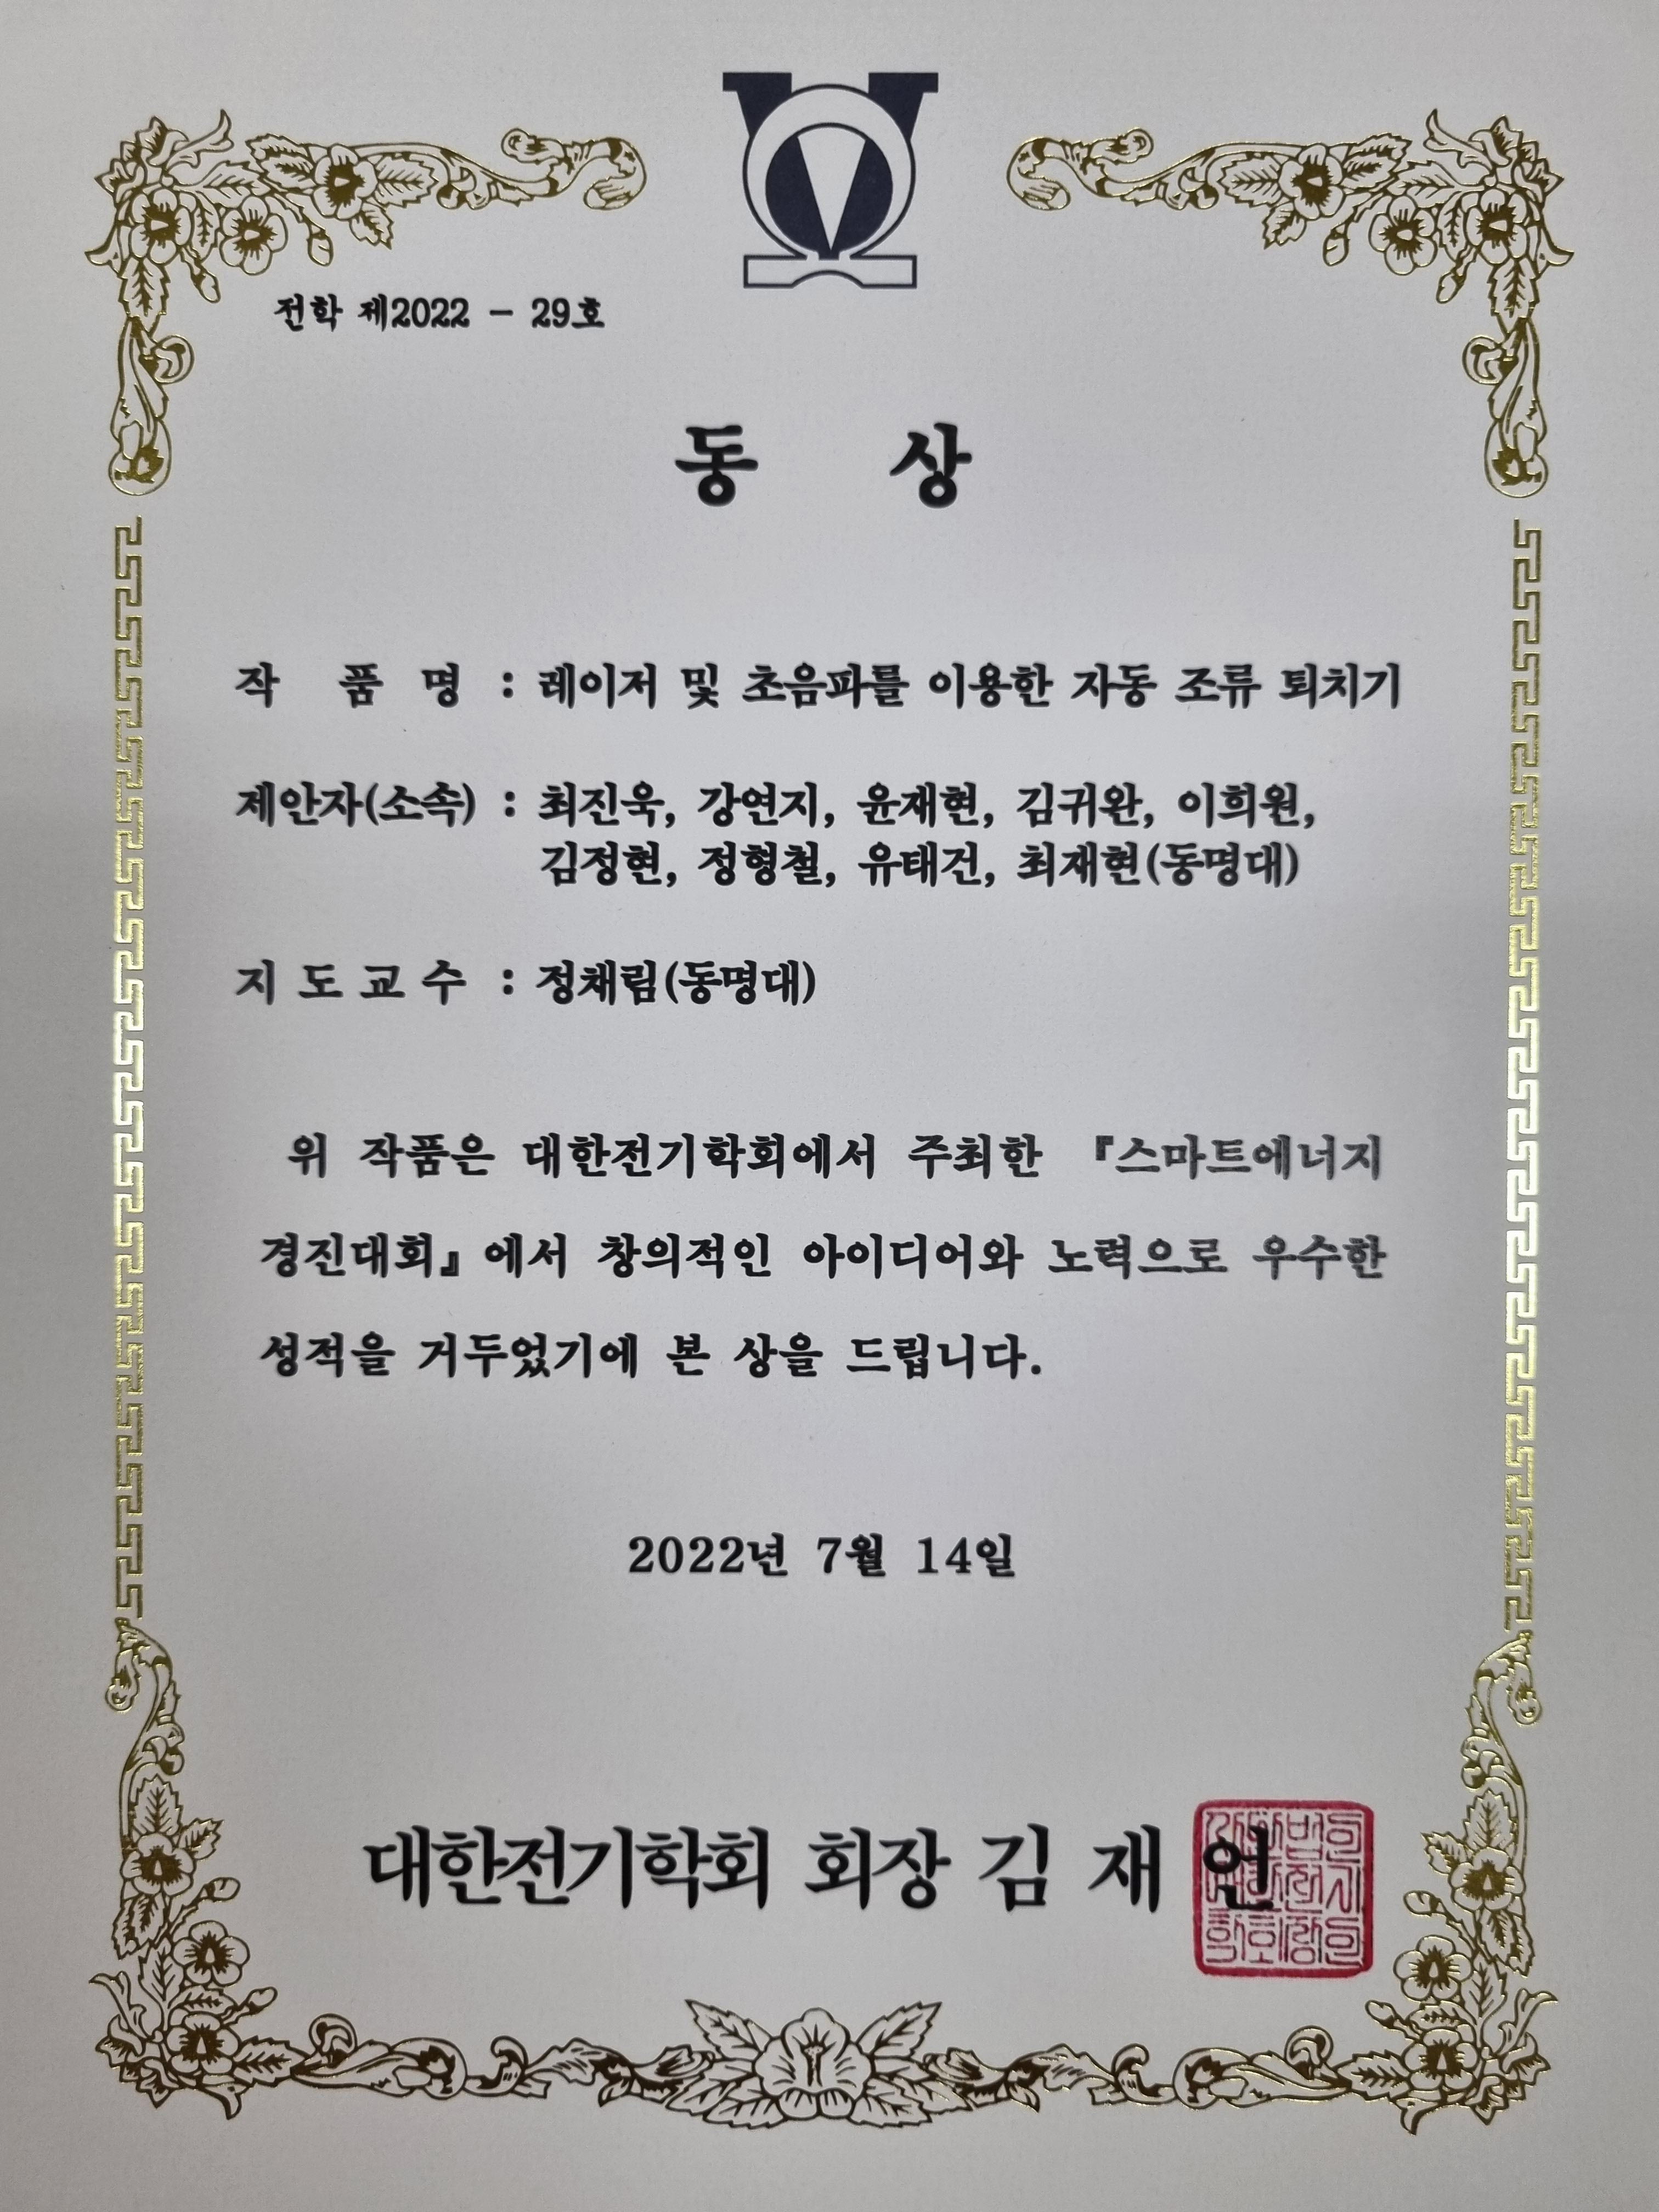 전학 제2022 - 29호
동 상
작 품 명 : 레이저 및 초음파를 이용한 자동 조류 퇴치기
제안자(소속) : 최진욱, 강연지, 윤재현, 김귀완, 이희원,
김정현, 정형철, 유태건, 최재현(동명대)
지 도 교 수 : 정채림(동명대)
위 작품은 대한전기학회에서 주최한 『스마트에너지
경진대회』에서 창의적인 아이디어와 노력으로 우수한
성적을 거두었기에 본 상을 드립니다.
2022년 7월 14일
대한전기학회 회장 김 재 언